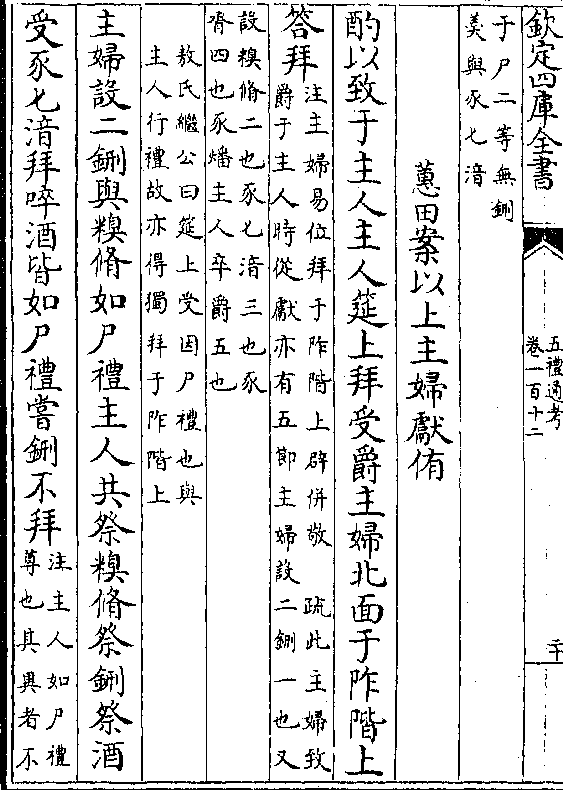 欽定四庫全書
五禮通考
卷一百十二
二十
于尸二等無鉶
羙與豕匕湆
蕙田案以上主婦獻侑
酌以致于主人主人筵上拜受爵主婦北面于阼階上
答拜
注主婦易位拜于阼階上辟併敬 疏此主婦致
爵于主人時從獻亦有五節主婦設二鉶一也又
設糗脩二也豕匕湆三也豕
脀四也豕燔主人卒爵五也
敖氏繼公曰筵上受因尸禮也與
主人行禮故亦得獨拜于阼階上
主婦設二鉶與糗脩如尸禮主人共祭糗脩祭鉶祭酒
受豕匕湆拜啐酒皆如尸禮嘗鉶不拜
注主人如尸禮
尊也其異者不